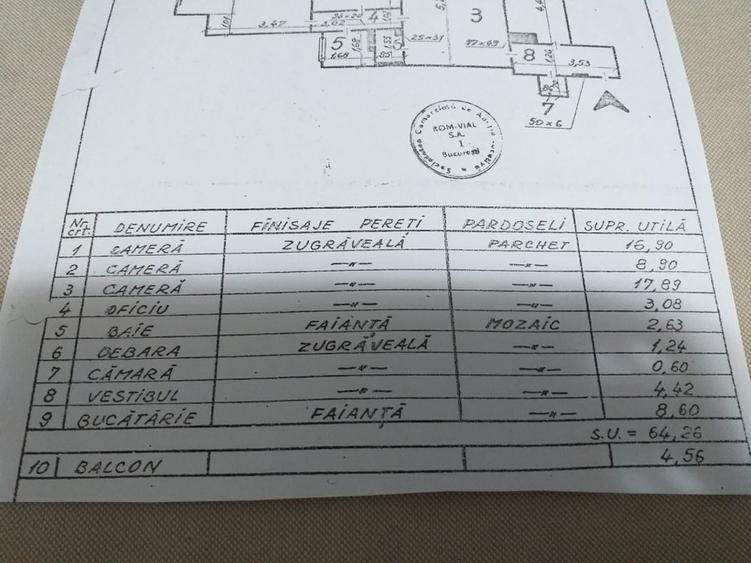 1,01
3,47
3,02
4
1,02
5
1,68
1,68
1,55
25×31
3
97×49
8
1,26
3,53
7
50×6
Societatea Comercială de
ROM-VIAL
S.A.
1
București
Nr. crt. DENUMIRE FINISAJE PEREȚI PARDOSELI SUPR. UTILĂ
1 CAMERĂ ZUGRĂVEALĂ PARCHET 16,90
2 CAMERĂ —"— —"— 8,90
3 CAMERĂ —"— —"— 17,89
4 OFICIU —"— —"— 3,08
5 BAIE FAIANȚĂ MOZAIC 2,63
6 DEBARA ZUGRĂVEALĂ —"— 1,24
7 CĂMARĂ —"— —"— 0,60
8 VESTIBUL —"— —"— 4,42
9 BUCĂTĂRIE FAIANȚĂ —"— 8,60
S.U. = 64,26
10 BALCON 4,56